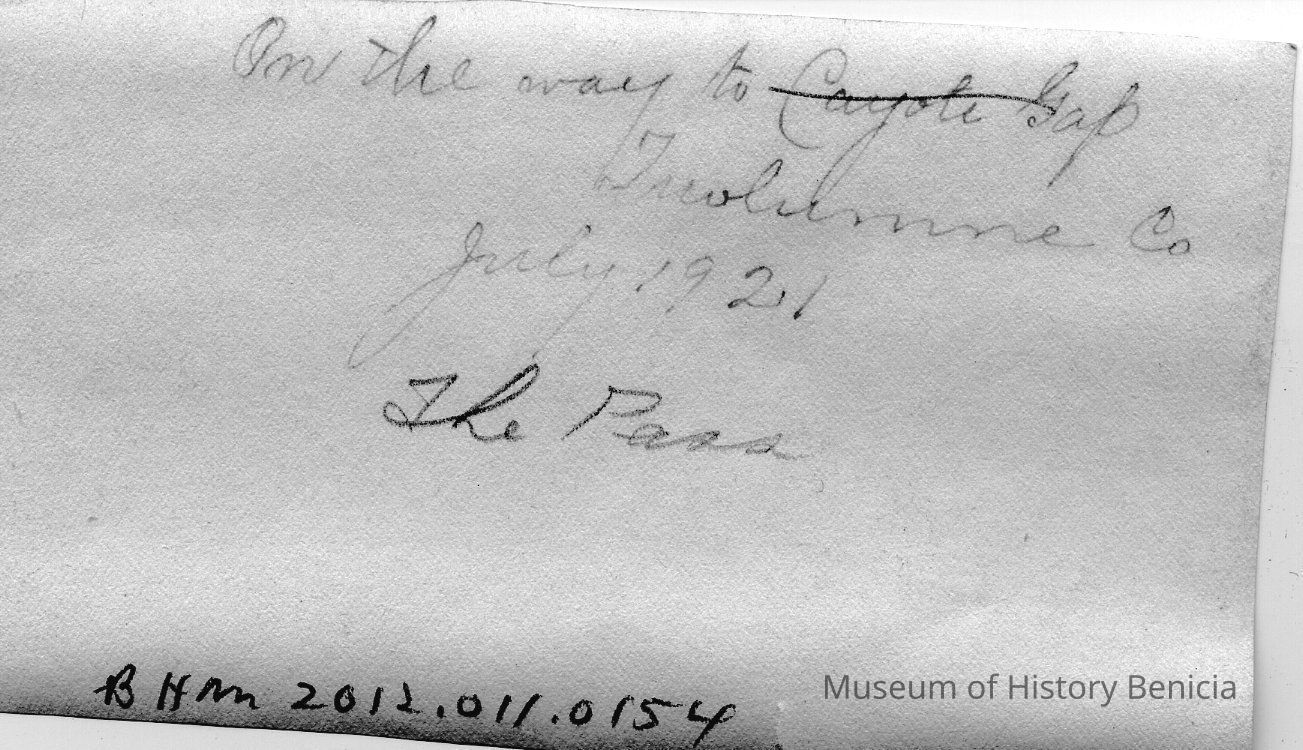 On the way to Cayote Gap
Tuolumne Co
July 1921
The Pass
BHM 2012.011.0154
Museum of History Benicia